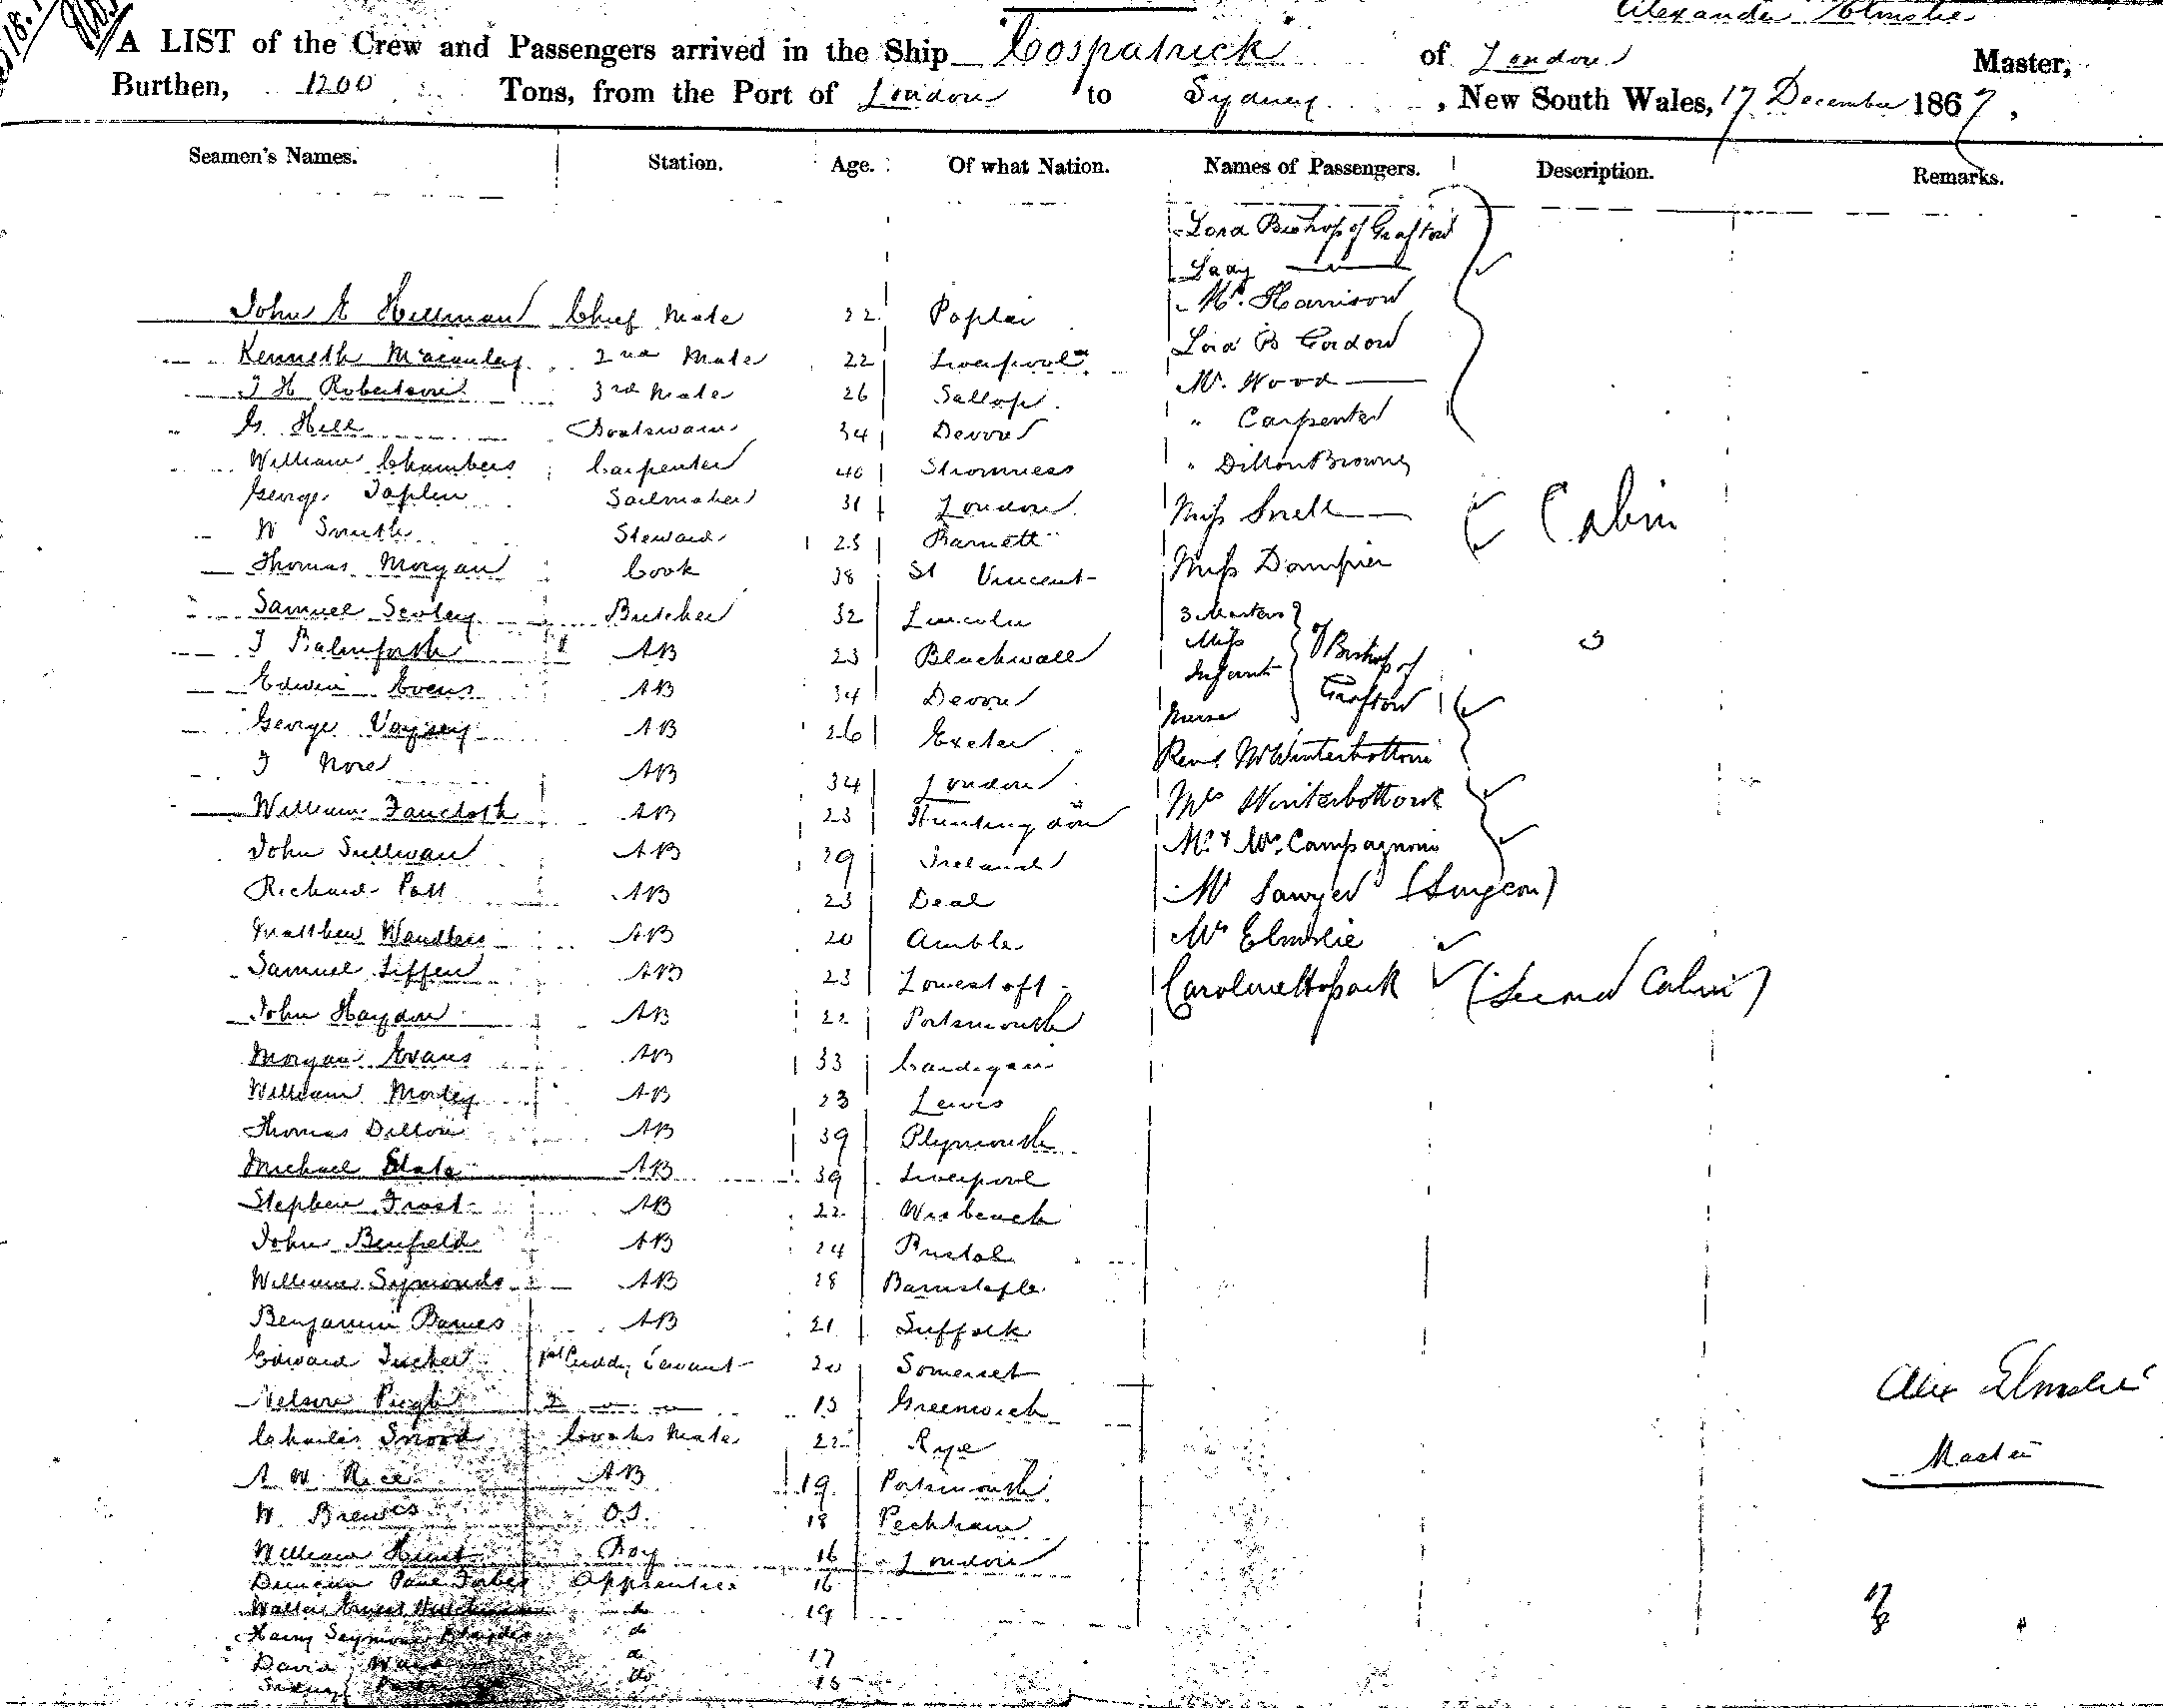 Alexander Elmslie
A LIST of the Crew and Passengers arrived in the Ship Cospatrick of London Master,
Burthen, 1200 Tons, from the Port of London to Sydney, New South Wales, 17 December 1867,
Seamen's Names. Station. Age. Of what Nation. Names of Passengers. Description. Remarks.
Lord Bishop of Grafton
Lady
Mr. Harrison
John E Hillman Chief Mate 22 Poplar
Lord B Gordon
Kenneth Macauley 2nd Mate 22 Liverpool
Mr. Wood
J H Robertson 3rd Mate 26 Sallop
" Carpenter
G. Hill Boatswain 34 Devon
" Dillon Browne
William Chambers Carpenter 40 Stromness
George Taplin Sailmaker 31 London Miss Snell Cabin
W Smith Steward 25 Barnett
Thomas Morgan Cook 38 St Vincent Miss Dampier
Samuel Scoley Butcher 32 Lincoln 3 Masters
J Balmforth AB 23 Blackwall Miss of Bishop of
Infant Grafton
Edwin Evens AB 34 Devon Nurse
George Voysey AB 26 Exeter Revd. Mr Winterbottom
J Nore AB 34 London Mrs Winterbottom
William Faucloth AB 23 Huntingdon
John Sullivan AB 39 Ireland Mr. & Mrs. Campagnoni
Richard Pott AB 23 Deal Mr Sawyer (Surgeon)
Matthew Wandless AB 20 Amble Mrs Elmslie
Samuel Tiffen AB 23 Lowestoft Caroline Hopack (Second Cabin)
John Haydon AB 22 Portsmouth
Morgan Evans AB 33 Cardigan
William Morley AB 23 Lewis
Thomas Dillon AB 39 Plymouth
Michael AB 39 Liverpool
Stephen Frost AB 22 Wisbeach
John Benfield AB 24 Bristol
William Symonds AB 28 Barnstaple
Benjamin Barnes AB 21 Suffolk
Edward Tucker 1st Cuddy Servant 20 Somerset
Alex Elmslie
Nelson Pugh 2 15 Greenwich
Charles Snood Cooks Mate 22 Rye
Master
A W. Rice AB 19 Portsmouth
W. Brewes O.S. 18 Peckham
William Hunt Boy 16 London
Duncan Forbes Apprentice 16
Walter Ernest do 19
Harry Seymour do
David do 17
Sidney do 15